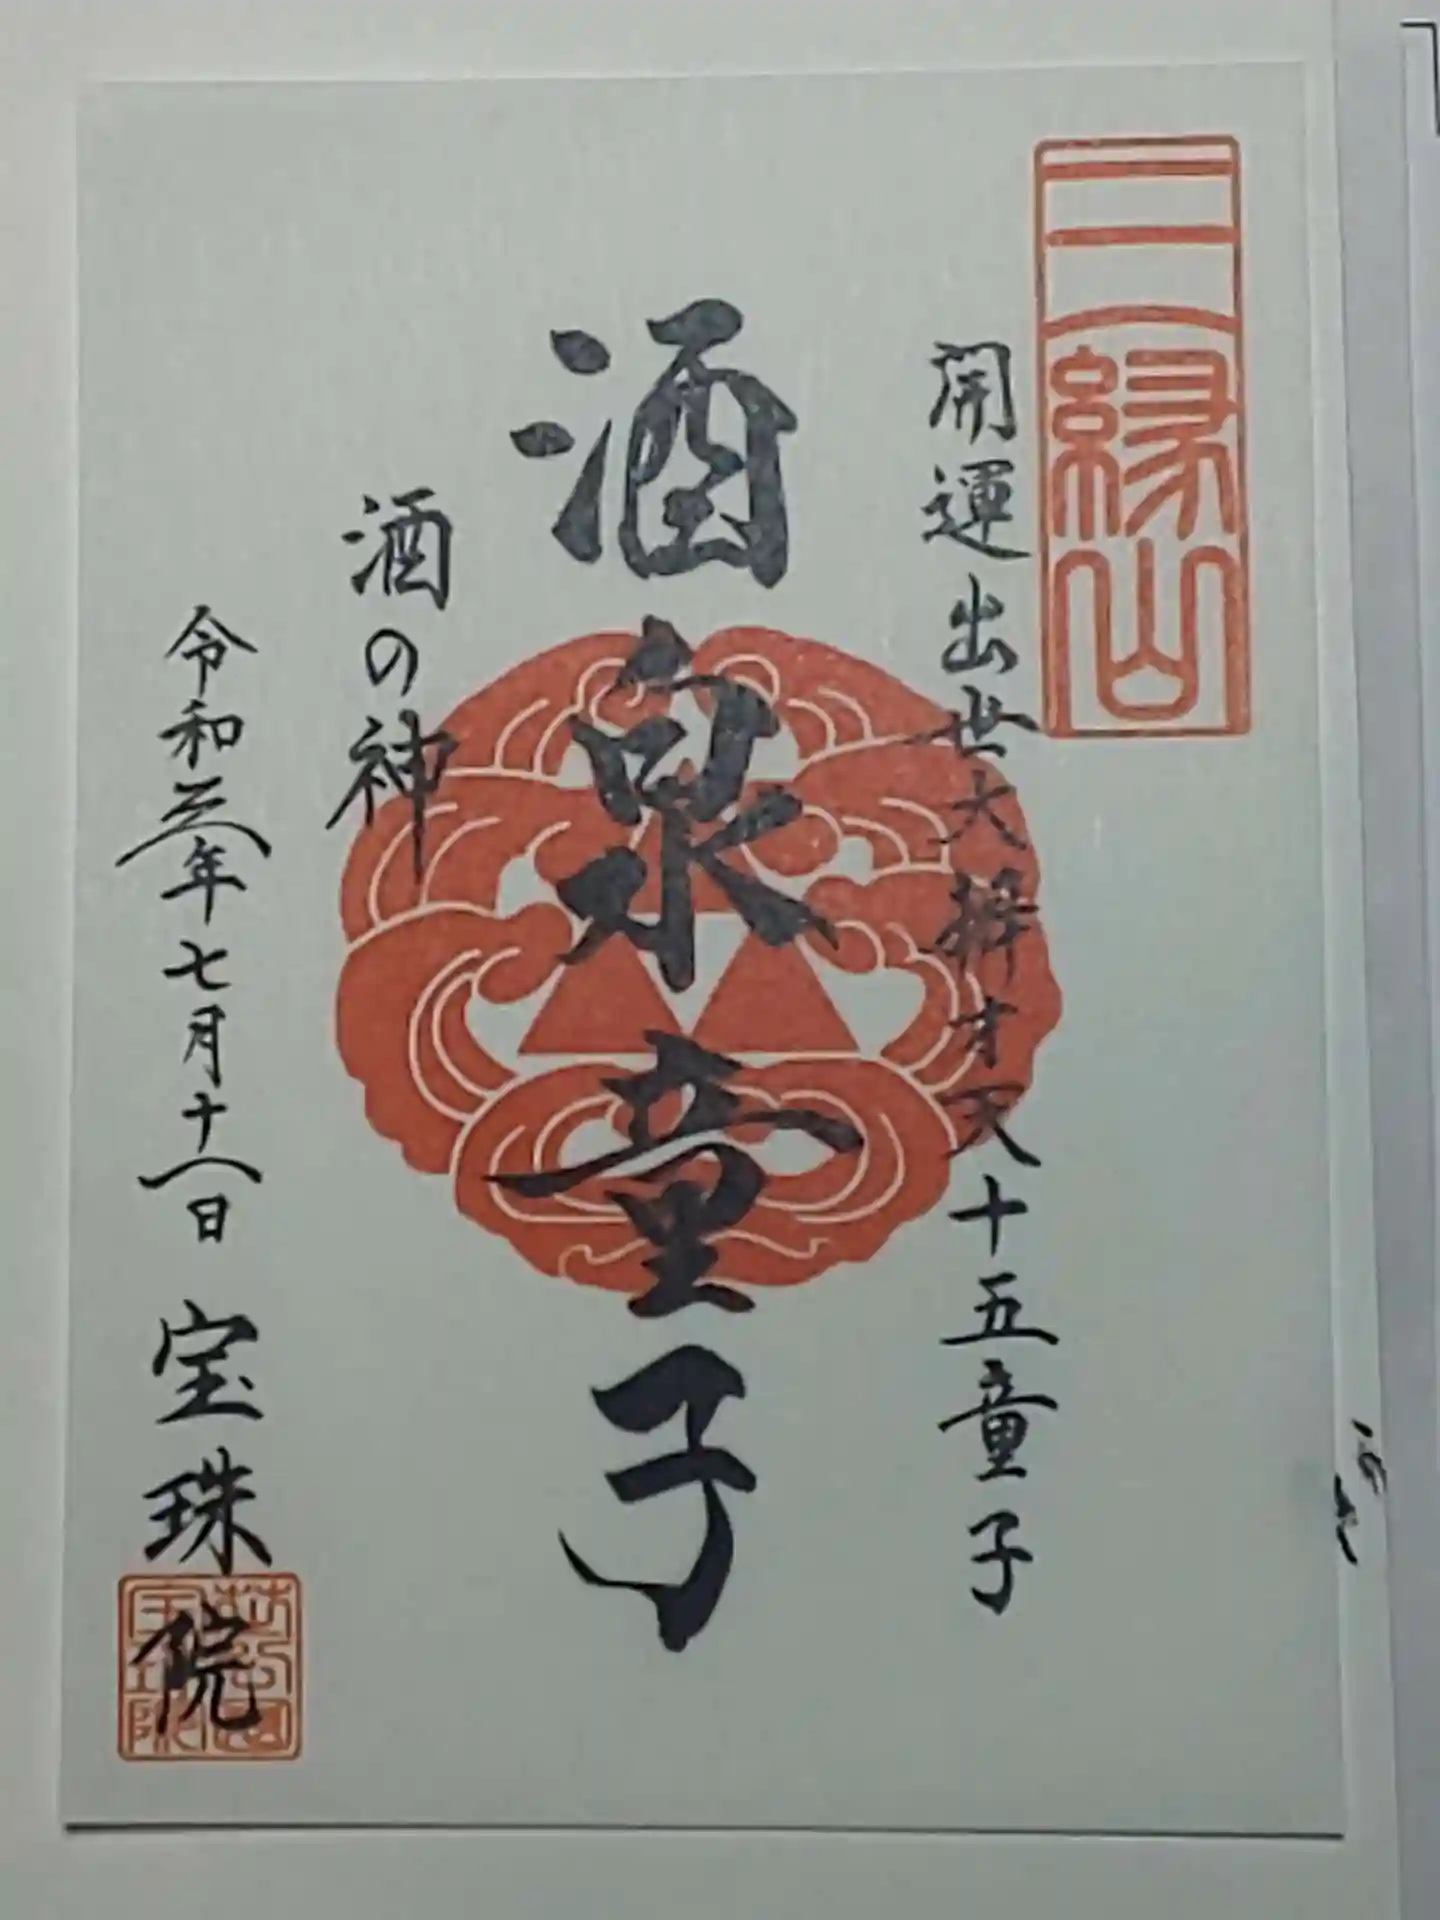 三縁山
開運出世大辨才天十五童子
酒泉童子
酒の神
令和三年七月十八日 宝珠院